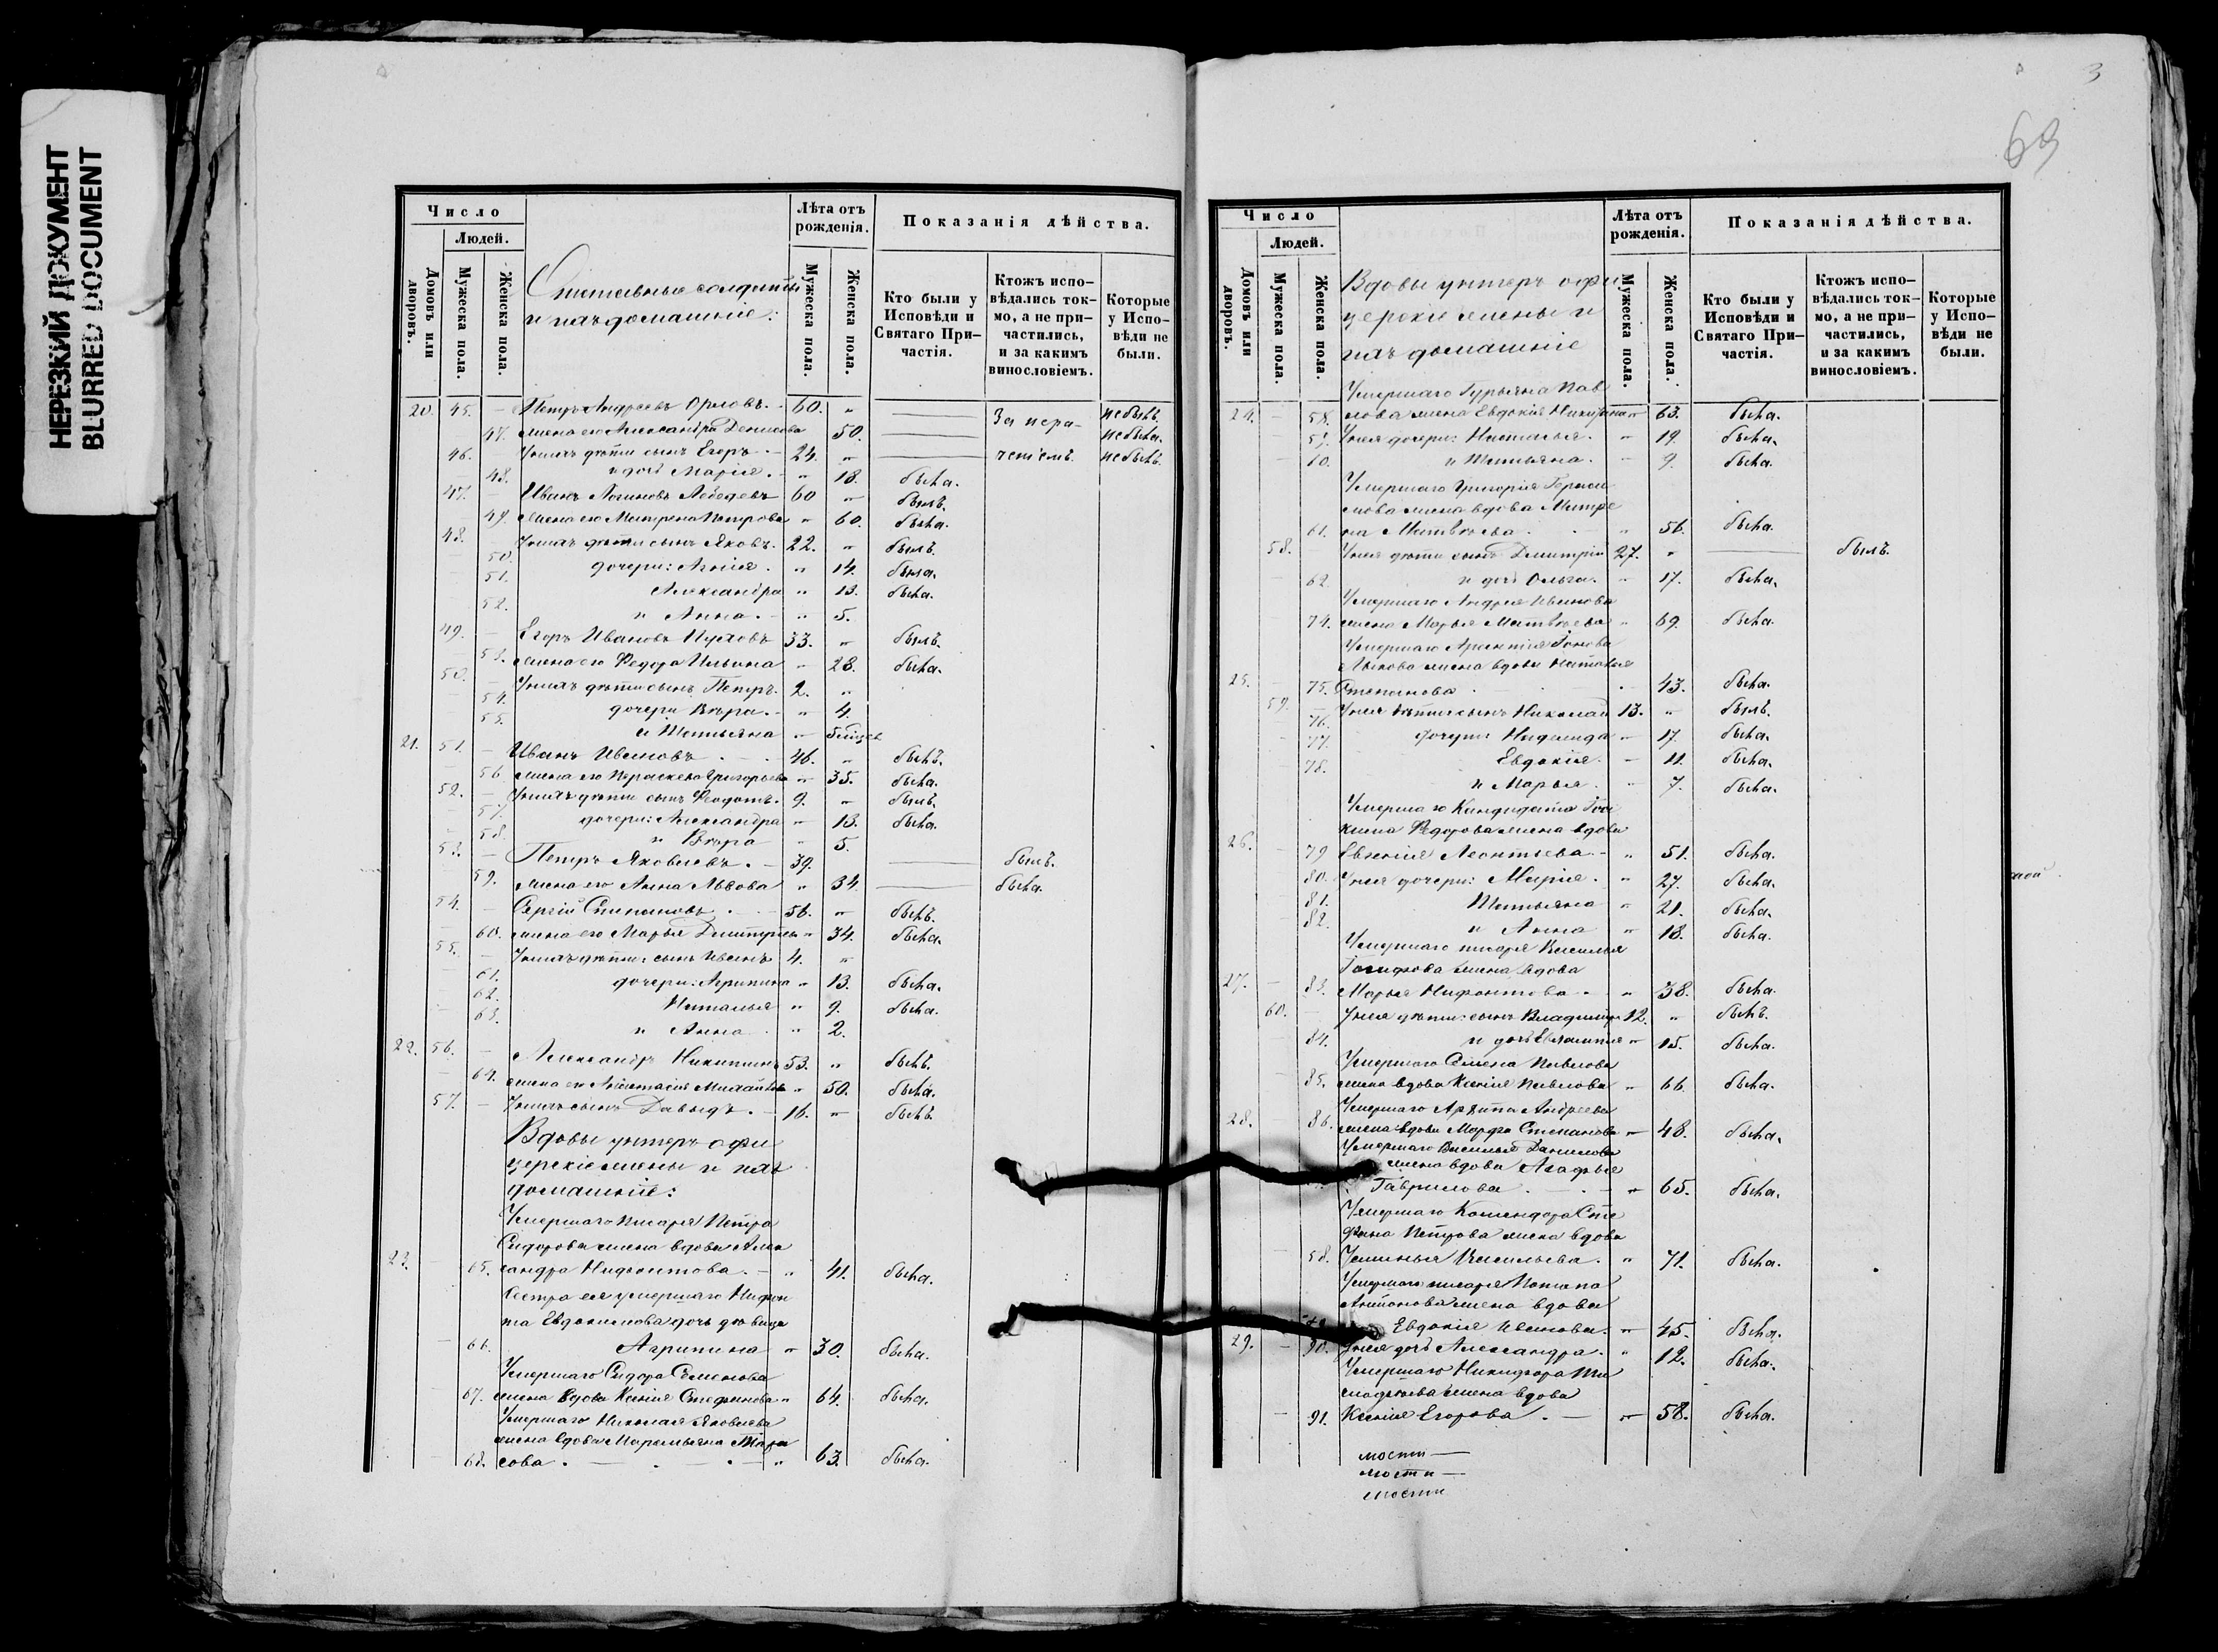 НЕРЕЗКИЙ ДОКУМЕНТ
BLURRED DOCUMENT
Число
Людей.
Домовъ или дворовъ.
Мужеска пола.
Женска пола.
Отставные солдаты
и ихъ домашніе:
Лѣта отъ рожденія.
Мужеска пола.
Женска пола.
Показанія дѣйства.
Кто были у Исповѣди и Святаго При-частія.
Ктожъ испо-вѣдались ток-мо, а не при-частились, и за какимъ винословіемъ.
Которые у Испо-вѣди не были.
20. 45. – Петръ Андреевъ Орловъ. 60. " — За нера- не былъ.
47. жена его Александра Денисова 50. — не была.
46. У нихъ дѣти сынъ Егоръ. 24. " — ченіемъ. не былъ.
48. и дочь Марія. " 18. была.
47. – Иванъ Логиновъ Лебедевъ 60 " былъ.
49. жена его Матрена Петрова " 60. была.
48. У нихъ дѣти сынъ Яковъ. 22. " былъ.
50. дочери: Агнія. " 14. была.
51. Александра " 13. была.
52. и Анна. " 5.
49. – Егоръ Ивановъ 33. " былъ.
53. жена его Федора Ильина " 28. была.
50. – У нихъ дѣти сынъ Петръ. 2. "
54. дочери Вѣра. " 4.
55. и Татьяна "
21. 51. – Иванъ Ивановъ 46. " былъ.
56 жена его Параскева Григорьева " 35. была.
52. – У нихъ дѣти сынъ Ѳеодотъ. 9. " былъ.
57. дочери: Александра " 13. была.
58. и Вѣра " 5.
53. – Петръ Яковлевъ. 39. — былъ.
59. жена его Анна Львова " 34. — была.
54. – Сергій Степановъ 56. " былъ.
60. жена его Марья Дмитріева " 34. была.
55. – У нихъ дѣти: сынъ Иванъ 4. "
61. дочери: Агрипина " 13. была.
62. Наталья " 9. была.
63. и Анна " 2.
22. 56. – Александръ Никитинъ 53. " былъ.
64. жена его Анастасія Михайлова " 50. была.
57. – У нихъ сынъ Давыдъ. 16. " былъ.
Вдовы унтеръ офи
церскіе жены и ихъ
домашніе:
Умершаго писаря Петра
Сидорова жена вдова Алек
23. 65. сандра Нифонтова. " 41. была.
Сестра ея умершаго Нифон
та Евдокимова дочь дѣвица
66. Агрипина " 30. была.
Умершаго Сидора Семенова
67. жена вдова Ксенія Стефанова " 64. была.
Умершаго Николая Яковлева
жена вдова Маремьяна Тара
68. сова. " 63. была.
3
69
Число
Людей.
Домовъ или дворовъ.
Мужеска пола.
Женска пола.
Вдовы унтеръ офи
церскіе жены и
ихъ домашніе
Лѣта отъ рожденія.
Мужеска пола.
Женска пола.
Показанія дѣйства.
Кто были у Исповѣди и Святаго При-частія.
Ктожъ испо-вѣдались ток-мо, а не при-частились, и за какимъ винословіемъ.
Которые у Испо-вѣди не были.
Умершаго Гурьяна Пав
24. – 58. лова жена Евдокія " 63. была.
59. У нея дочери: Наталья. " 19. была.
60. и Татьяна. " 9. была.
Умершаго Григорія Гераси
мова жена вдова Матре
61. на Матвѣева. " 56. была.
58. – У нея дѣти сынъ Дмитрій 27. " — былъ.
62. и дочь Ольга. " 17. была.
Умершаго Андрея Иванова
74. жена Марья Матвѣева " 69. была.
Умершаго
жена вдова Наталья
25. – 75. Степанова " 43. была.
59. – У нея дѣти сынъ Николай 13. " былъ.
76.
77. дочери: Надежда " 17. была.
78. Евдокія. " 11. была.
и Марья. " 7. была.
Умершаго Кандидата
кима Федорова жена вдова
26. – 79 Евгенія Леонтьева. " 51. была.
80. У нея дочери: Марія. " 27. была.
81. Татьяна " 21. была.
82. и Анна " 18. была.
Умершаго писаря Василья
жена вдова
27. – 83. Марья Нифонтова. " 38. была.
60. – У нея дѣти: сынъ Владиміръ 12. " былъ.
84. и дочь Евлампія " 15. была.
Умершаго Семена Павлова
85. жена вдова Ксенія Павлова " 66. была.
Умершаго Архипа Андреева
28. – 86. жена вдова Марфа Степанова " 48. была.
Умершаго Василья Данилова
жена вдова Агафья
Гаврилова " 65. была.
Умершаго Командора Сте
фана Петрова жена вдова
58. Устинья Васильева. " 71. была.
Умершаго писаря Потапа
Антонова жена вдова
Евдокія Иванова. " 45. была.
29. – 90. У нея дочь Александра. " 12. была.
Умершаго Никифора Ти
мофеева жена вдова
91. Ксенія Егорова. " 58. была.
мости —
мости —
мости